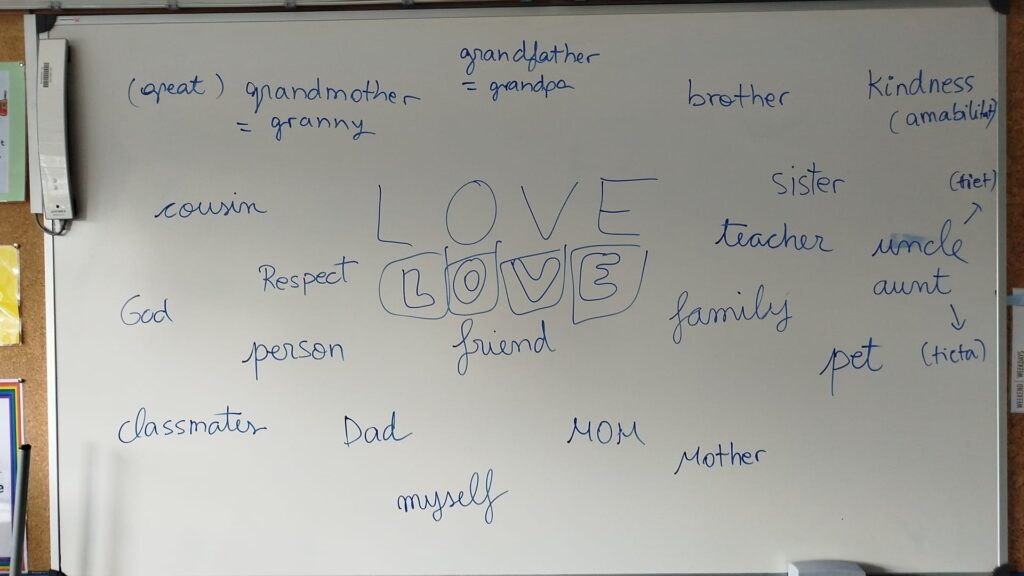 grandfather
= grandpa
(great) grandmother
= granny
brother
kindness
(amabilitat)
cousin
LOVE
LOVE
sister
(tiet)
teacher
uncle
aunt
Respect
God
family
person
friend
pet
(tieta)
classmates
Dad
MOM
Mother
myself
WEEKEND | WEEKDAYS